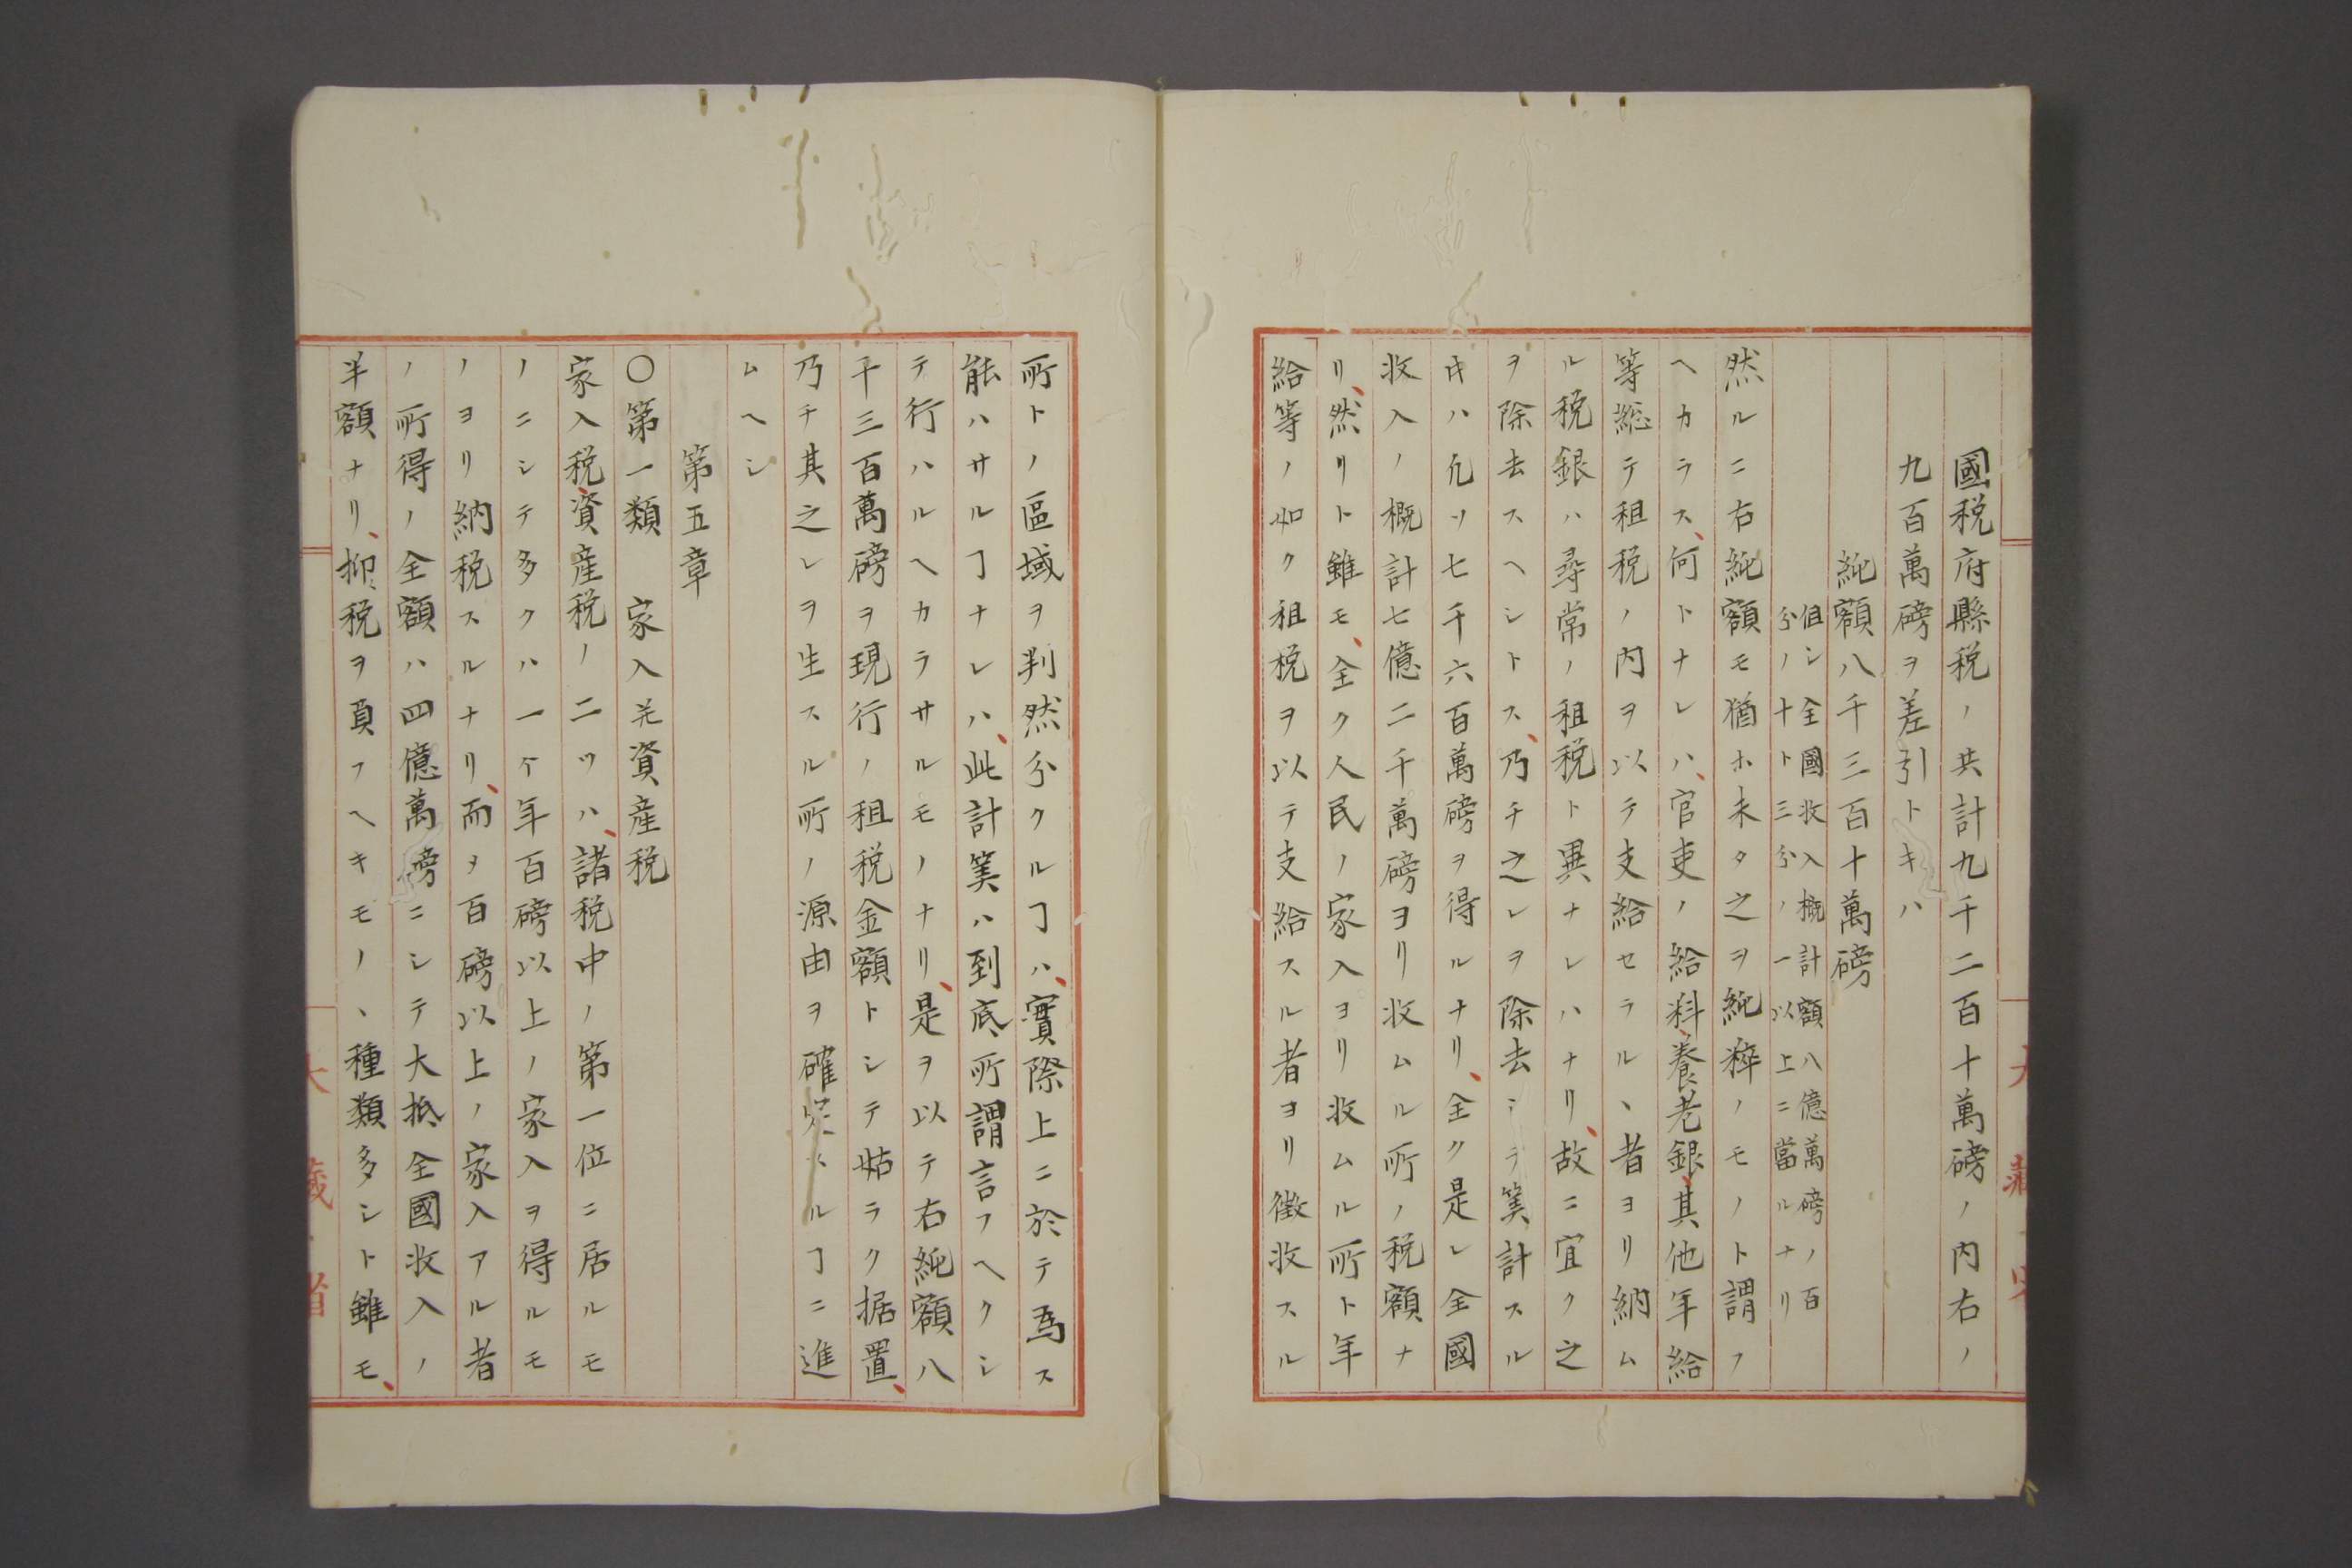 國税府縣税ノ共計九千二百十萬磅ノ内右ノ
九百萬磅ヲ差引トキハ
純額八千三百十萬磅
但シ全國收入概計額八億萬磅ノ百
分ノ十ト三分ノ一以上ニ當ルナリ
然ルニ右純額モ猶ホ未タ之ヲ純粹ノモノト謂フ
ヘカラス、何トナレハ、官吏ノ給料、養老銀、其他年給
等総テ租税ノ内ヲ以テ支給セラルヽ者ヨリ納ム
ル税銀ハ尋常ノ租税ト異ナレハナリ、故ニ宜ク之
ヲ除去スヘシトス、乃チ之レヲ除去シテ筭計スル
キハ凢ソ七千六百萬磅ヲ得ルナリ、全ク是レ全國
收入ノ概計七億二千萬磅ヨリ收ムル所ノ税額ナ
リ、然リト雖モ、全ク人民ノ家入ヨリ收ムル所ト年
給等ノ如ク租税ヲ以テ支給スル者ヨリ徴收スル
所トノ區域ヲ判然分クルヿハ、實際上ニ於テ爲ス
能ハサルヿナレハ、此計筭ハ到底所謂言フヘクシ
テ行ハルヘカラサルモノナリ、是ヲ以テ右純額八
千三百萬磅ヲ現行ノ租税金額トシテ姑ラク据置、
乃チ其之レヲ生スル所ノ源由ヲ確 ルヿニ進
ムヘシ
第五章
〇第一類 家入並資産税
家入税、資産税ノ二ツハ、諸税中ノ第一位ニ居ルモ
ノニシテ多クハ一ケ年百磅以上ノ家入ヲ得ルモ
ノヨリ納税スルナリ、而ヲ百磅以上ノ家入アル者
ノ所得ノ全額ハ四億萬磅ニシテ大抵全國收入ノ
半額ナリ、抑税ヲ負フヘキモノヽ種類多シト雖モ、
大藏省